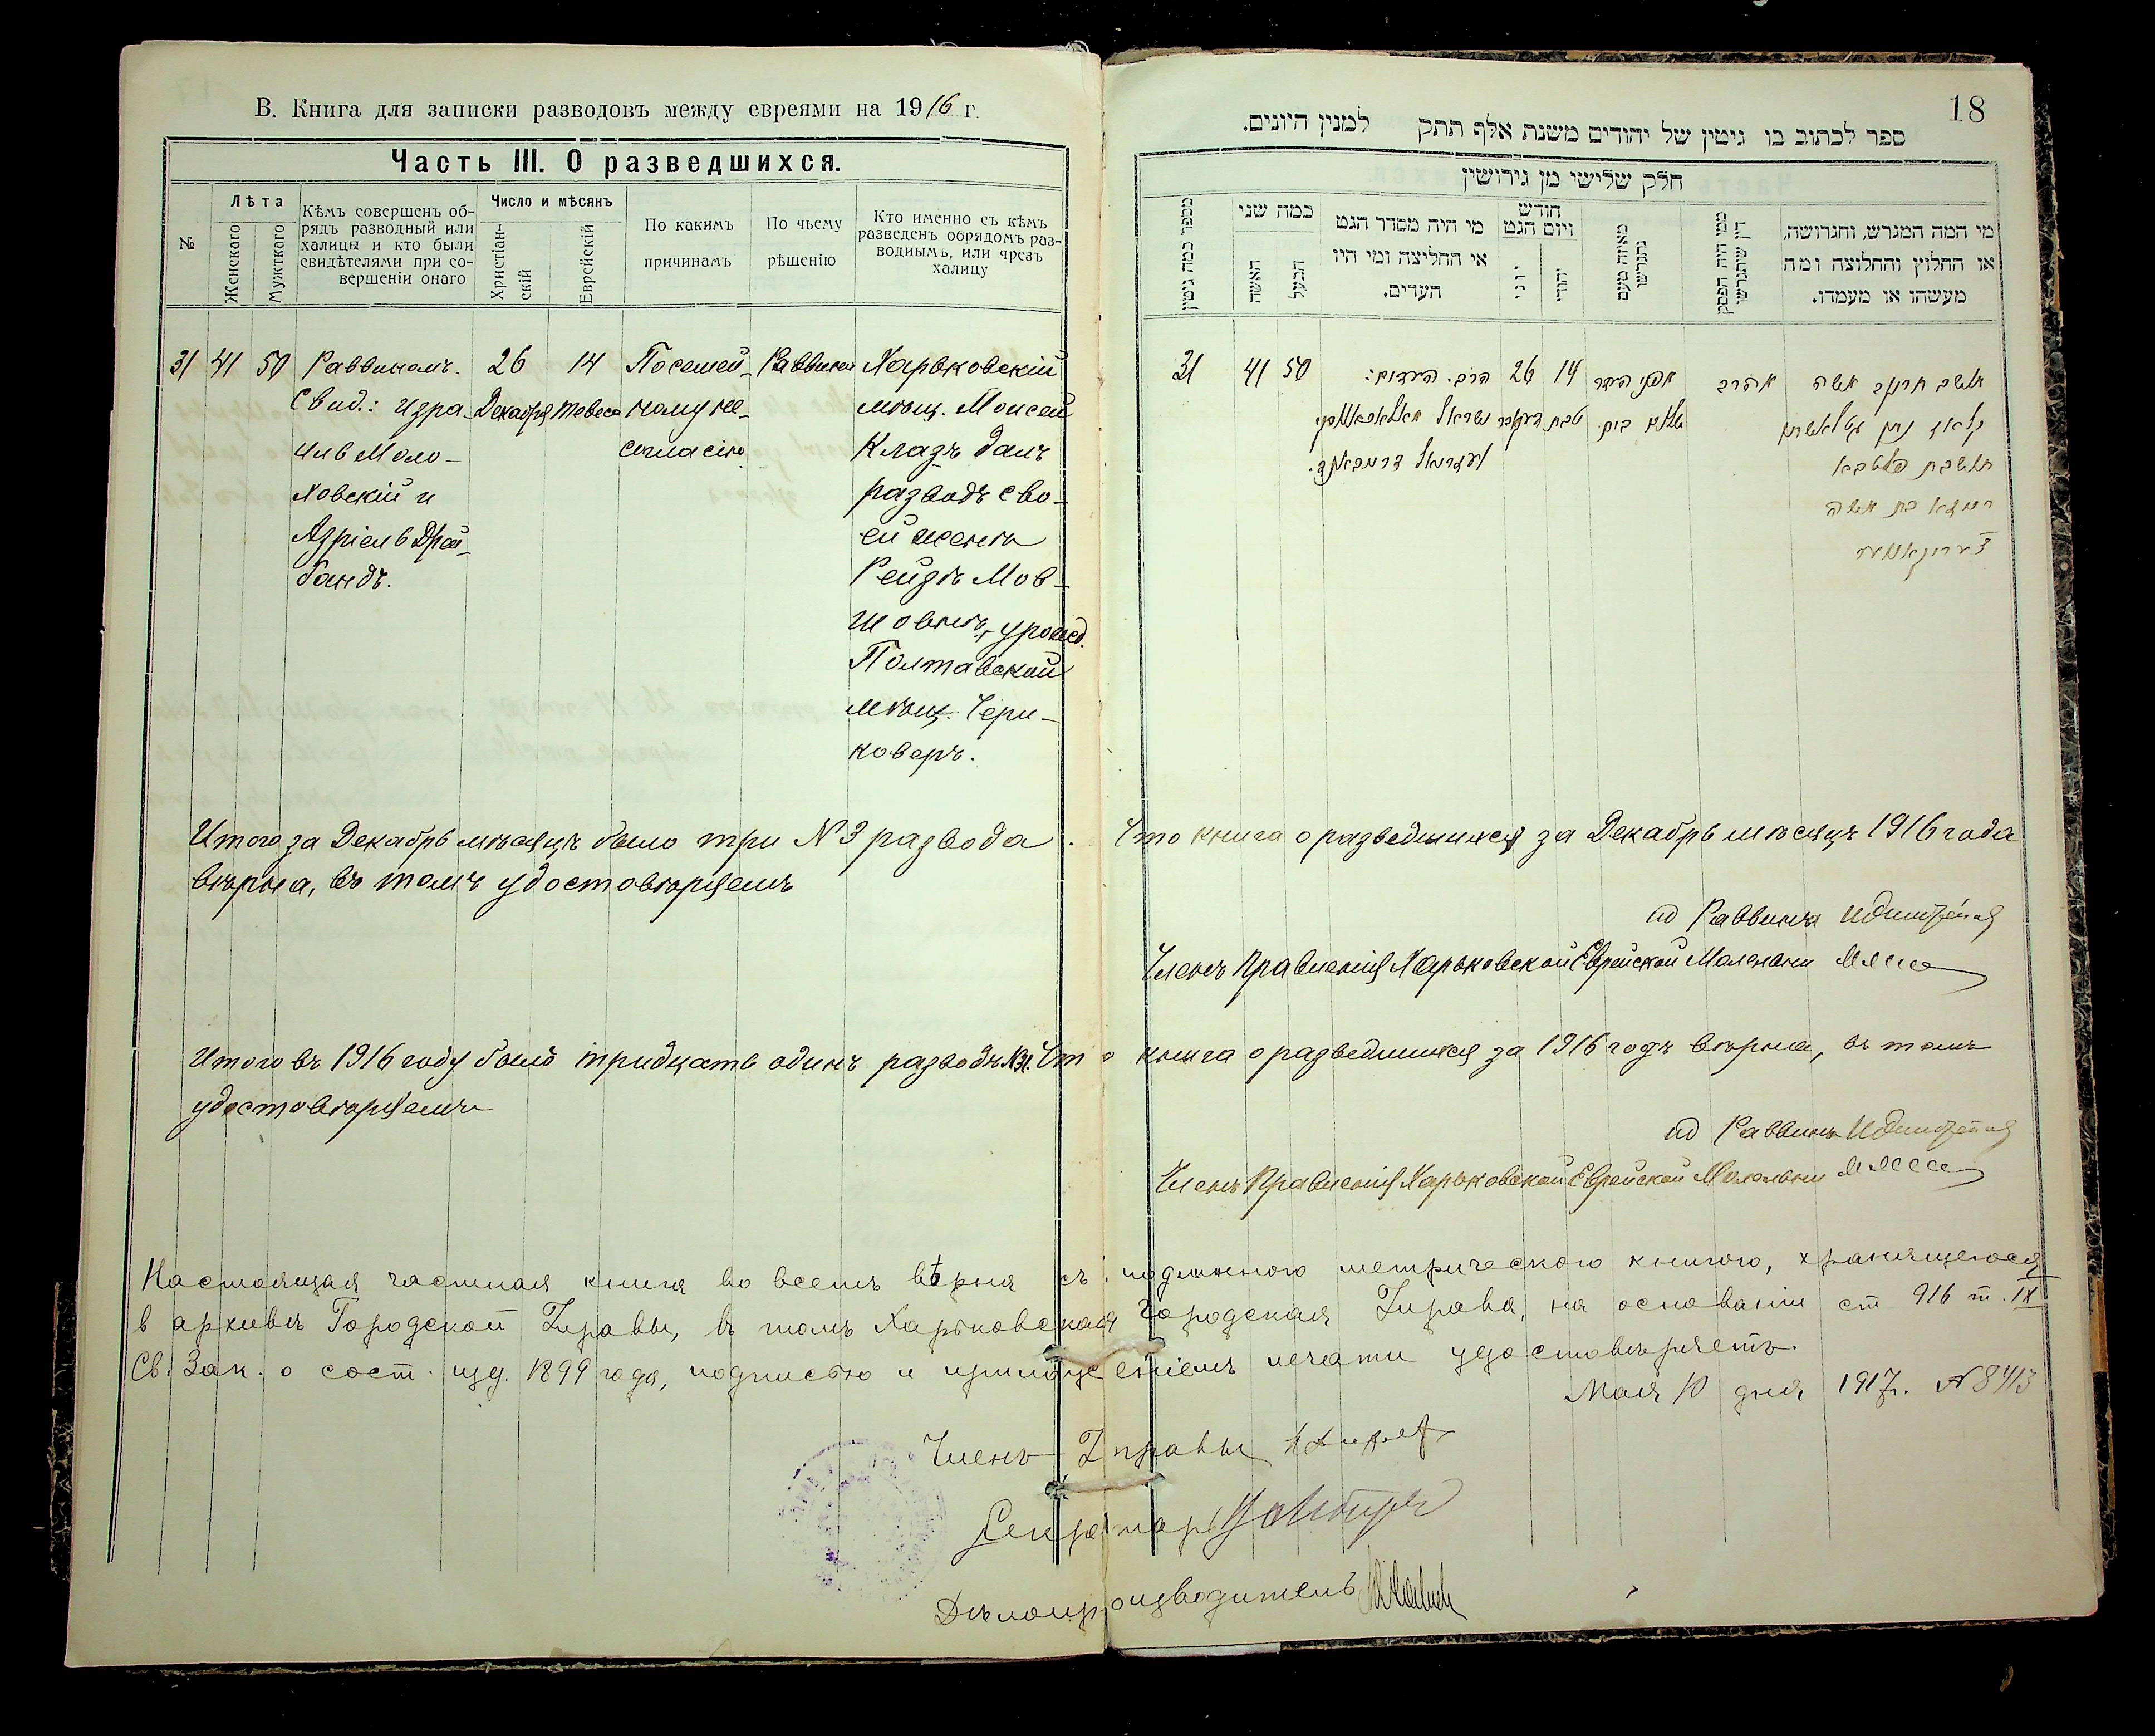 В. Книга для записки разводовъ между евреями на 1916 г.
Часть III. О разведшихся.
№
Лѣта
Женскаго
Мужткаго
Кѣмъ совершенъ об-
рядъ разводный или
халицы и кто были
свидѣтелями при со-
вершеніи онаго
Число и мѣсянъ
Христіан-
скій
Еврейскій
По какимъ
причинамъ
По чьему
рѣшенію
Кто именно съ кѣмъ
разведенъ обрядомъ раз-
воднымъ, или чрезъ
халицу
31 41 50 Раввиномъ. 26 14 По семей- Раввина Харьковскій
Свид.: Изра- Декабря Тевеса ному не- мѣщ. Моисей
иль Моло- согласію Клазъ далъ
ховскій и разводъ сво-
Азріель Дрей- ей женѣ
бандъ. Рейзѣ Мов-
шовнѣ, урожд.
Полтавской
мѣщ. Чери-
коверъ.
18
ספר לכתוב בו גיטין של יהודים משנת אלף תתק למנין היונים.
חלק שלישי מן גירושין
מספר כמה גיטין
כמה שני
האשה
הבעל
מי היה מסדר הגט
או החליצה ומי היו
העדים.
חודש
ויום הגט
יוני
יהודי
מאיזה טעם
נתגרשו
כפי איזה הפסק
דין שיתגרשו
מי המה המגרש, והגרושה,
או החלוץ והחלוצה ומה
מעשהו או מעמדו.
31 41 50 הרב. העדים: 26 14
טבת
ישראל
שלום בית.
משה
Итого за Декабрь мѣсяцъ было три №3 развода. Что книга о разведшихся за Декабрь мѣсяцъ 1916 года
вѣрна, въ томъ удостовѣряемъ
ид Раввина
Членъ Правленія Харьковской Еврейской Молельни
Итого въ 1916 году было тридцать одинъ разводъ №31. Что книга о разведшихся за 1916 годъ вѣрна, въ томъ
удостовѣряемъ
ид Раввина
Членъ Правленія Харьковской Еврейской Молельни
Настоящая частная книга во всемъ вѣрна съ подлинною метрическою книгою, хранящеюся
в архивѣ Городской Управы, въ томъ Харьковская Городская Управа, на основаніи ст 916 т. IX
Св. Зак. о сост. изд. 1899 года, подписью и приложеніемъ печати удостовѣряетъ.
Мая 10 дня 1917г. № 8413
Членъ Управы
Секретарь
Дѣлопроизводитель